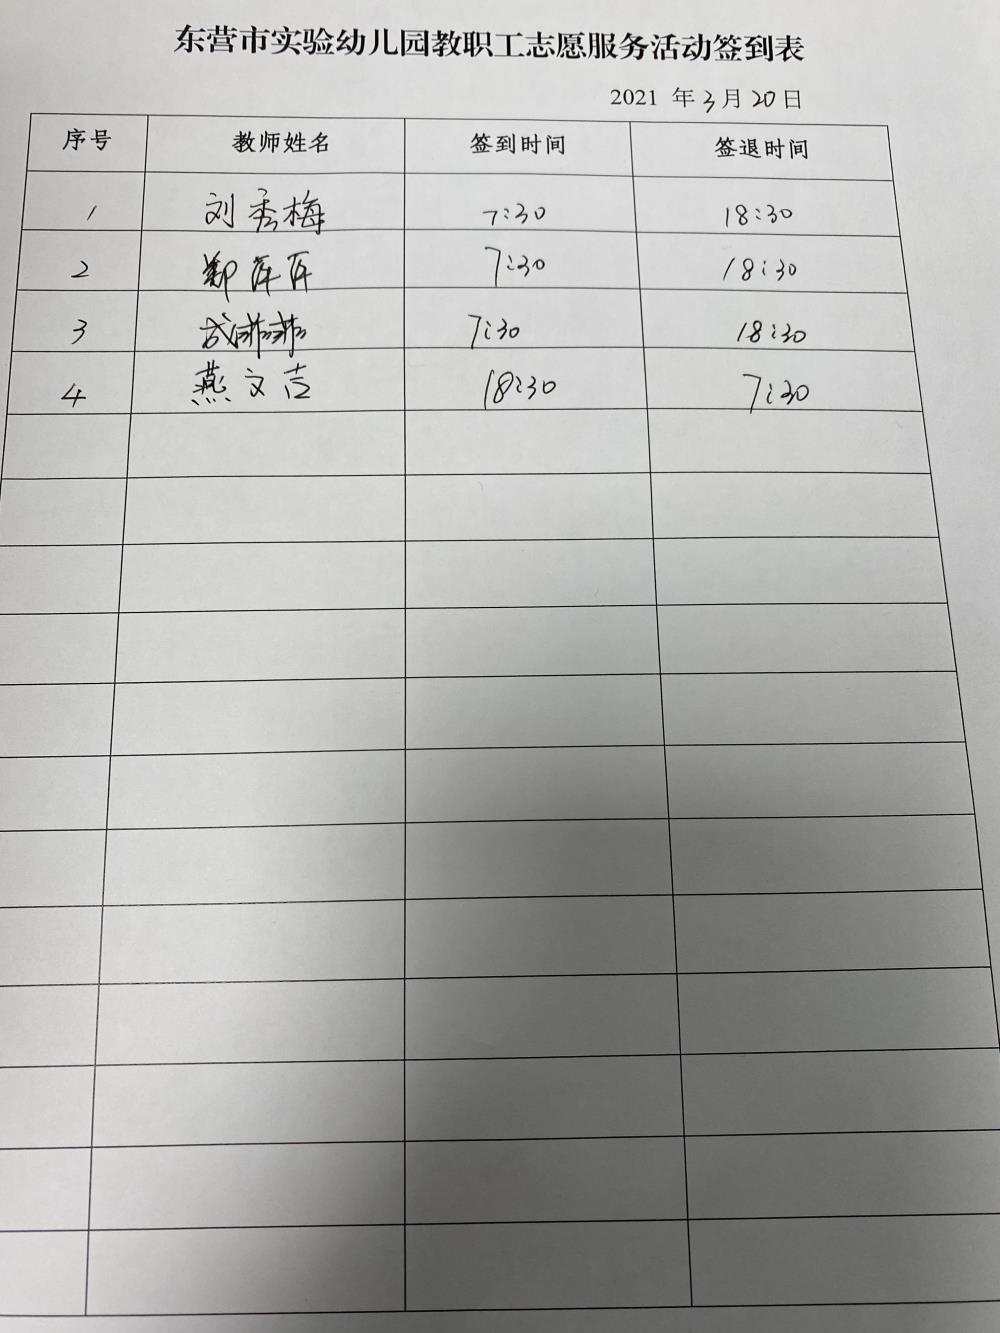 东营市实验幼儿园教职工志愿服务活动签到表
2021 年 3 月 20 日
序号 教师姓名 签到时间 签退时间
1 刘秀梅 7:30 18:30
2 郑 7:30 18:30
3 7:30 18:30
4 燕文吉 18:30 7:30